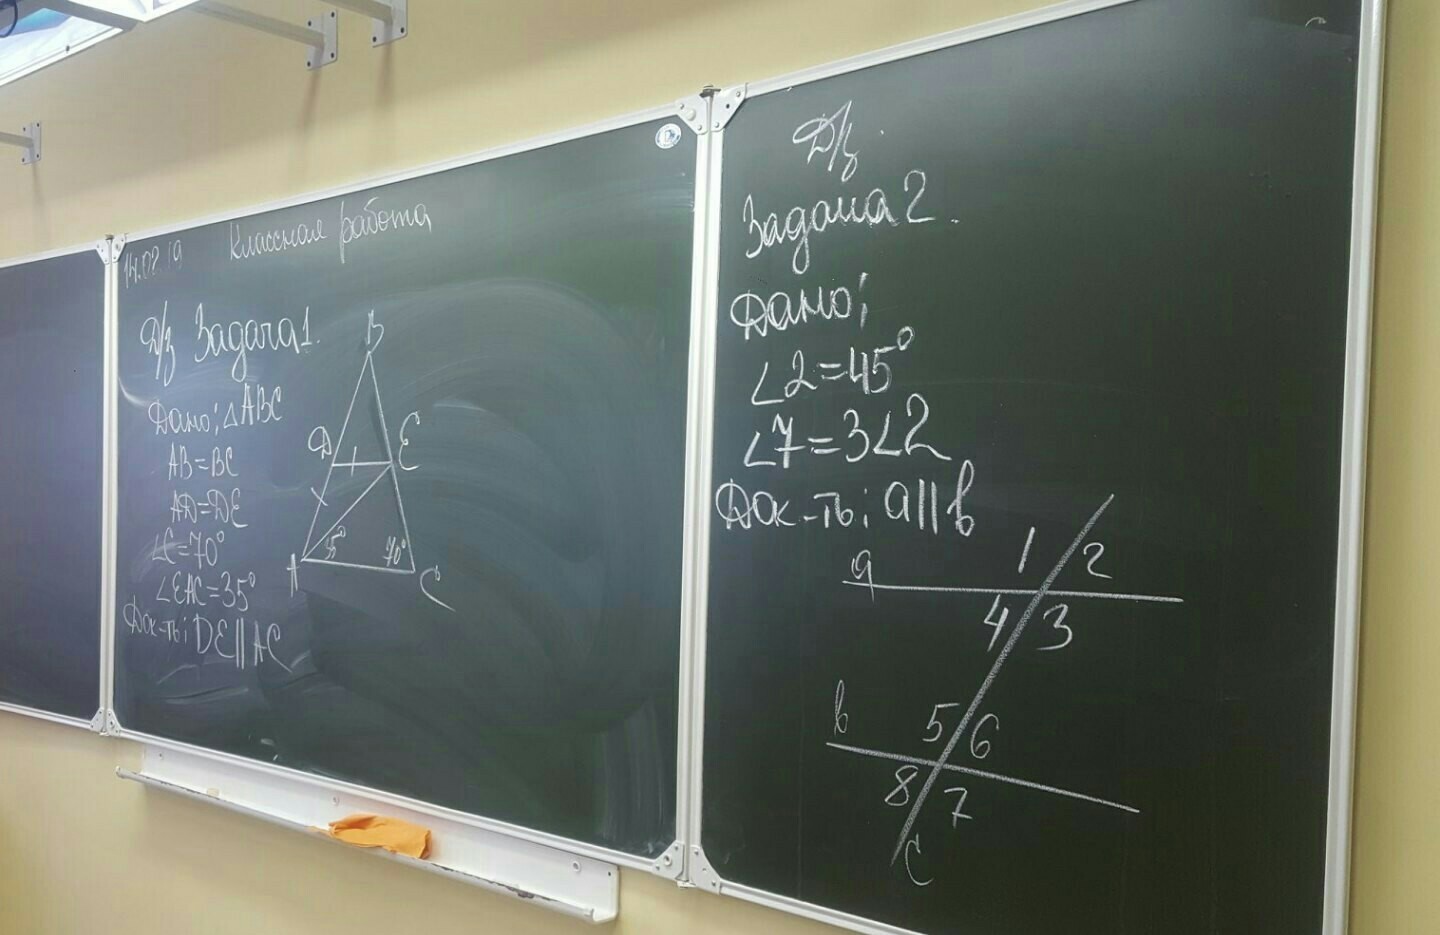 14.02.19 Классная работа
Д/з Задача 1.
Дано: △ABC
AB=BC
AD=DE
∠C=70°
∠EAC=35°
Док-ть: DE∥AC
B
D
E
35°
70°
A
C
Д/з.
Задача 2.
Дано:
∠2=45°
∠7=3∠2
Док-ть: a∥b
a
1
2
4
3
b
5
6
8
7
c